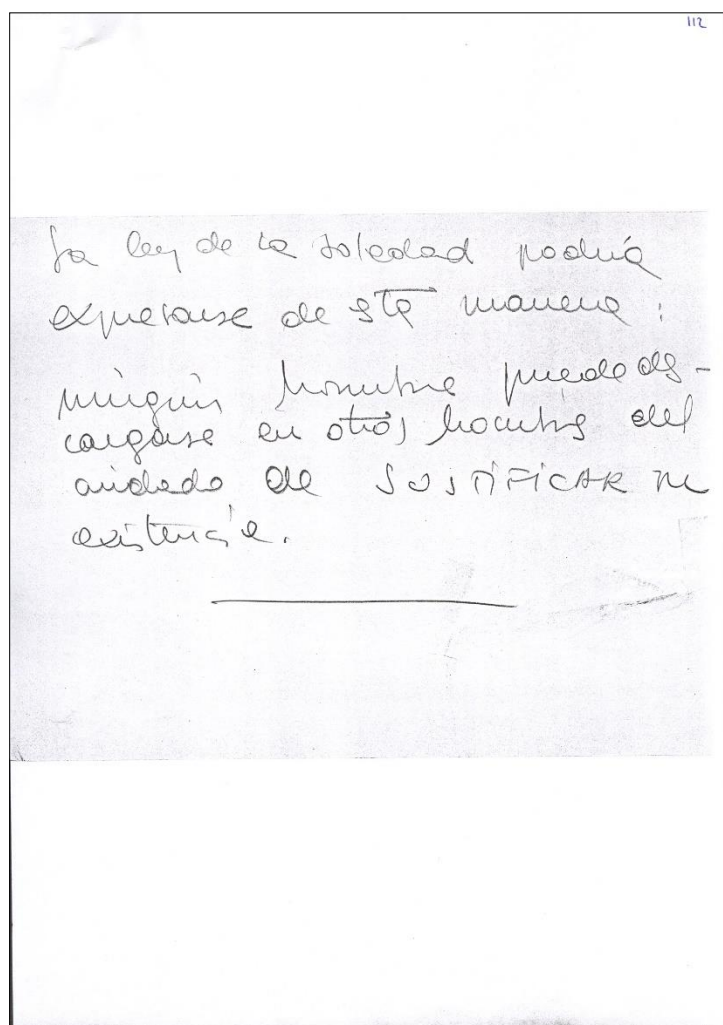 112
La ley de la soledad podría
expresarse de esta manera:
ningún hombre puede des-
cargarse en otros hombres del
cuidado de JUSTIFICAR su
existencia.